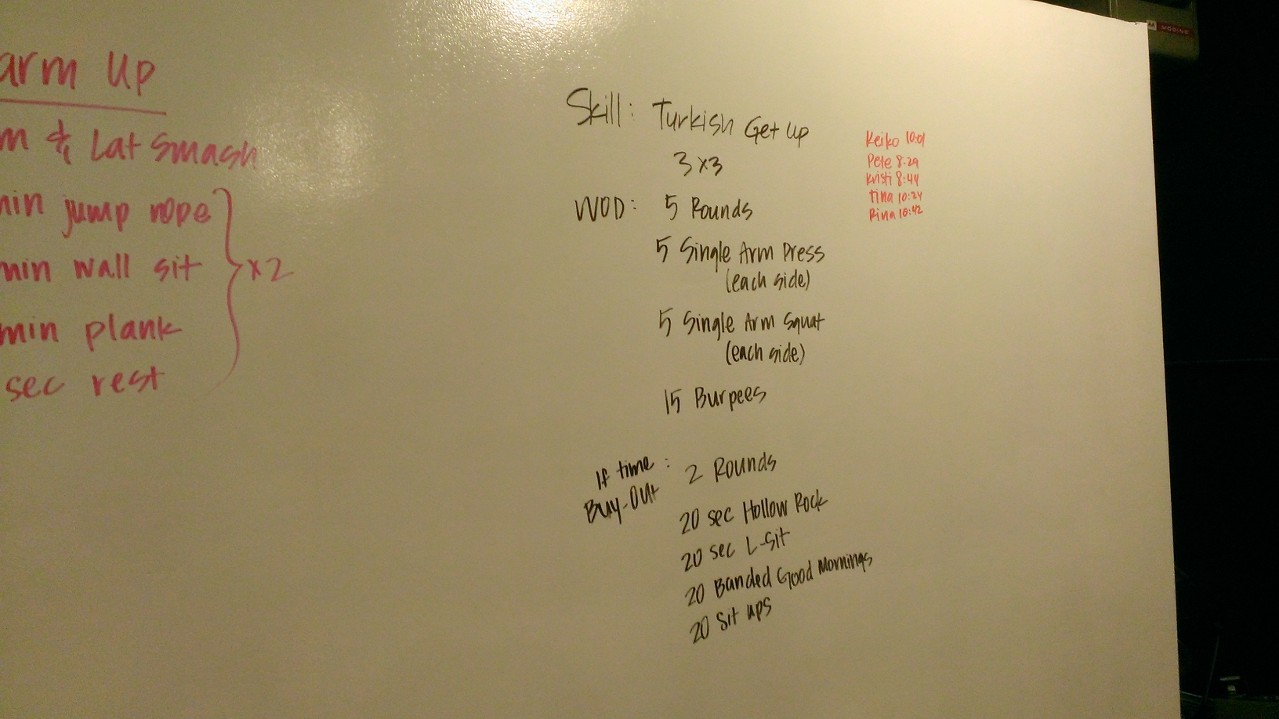 arm Up
m & Lat Smash
min jump rope
min wall sit
x2
min plank
sec rest
Skill: Turkish Get Up
3x3
WOD: 5 Rounds
5 Single Arm Press
(each side)
5 Single Arm Squat
(each side)
15 Burpees
If time: 2 Rounds
Buy-Out
20 sec Hollow Rock
20 sec L-Sit
20 Banded Good Mornings
20 Sit ups
Keiko 10:01
Pete 8:29
Kristi 8:44
Tina 10:24
Rina 10:42
MODINE